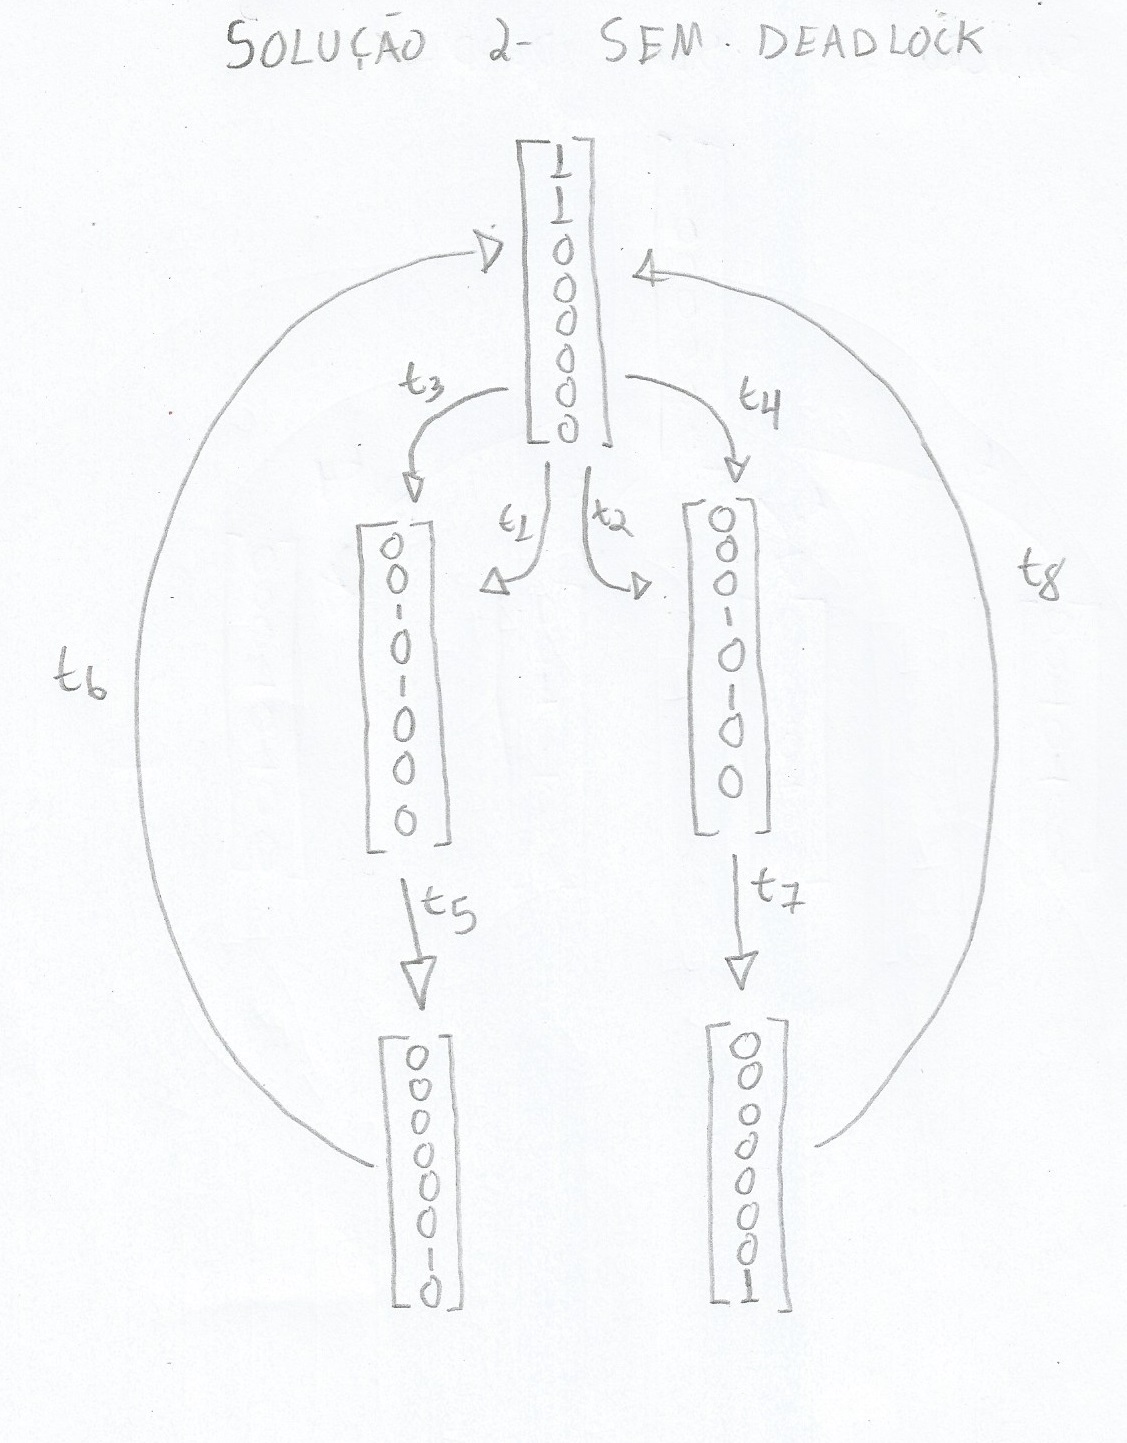 SOLUÇÃO 2- SEM DEADLOCK
1
1
0
0
0
0
0
0
t3
t4
t1
t2
0
0
1
0
1
0
0
0
0
0
0
1
0
1
0
0
t6
t8
t5
t7
0
0
0
0
0
0
1
0
0
0
0
0
0
0
0
1